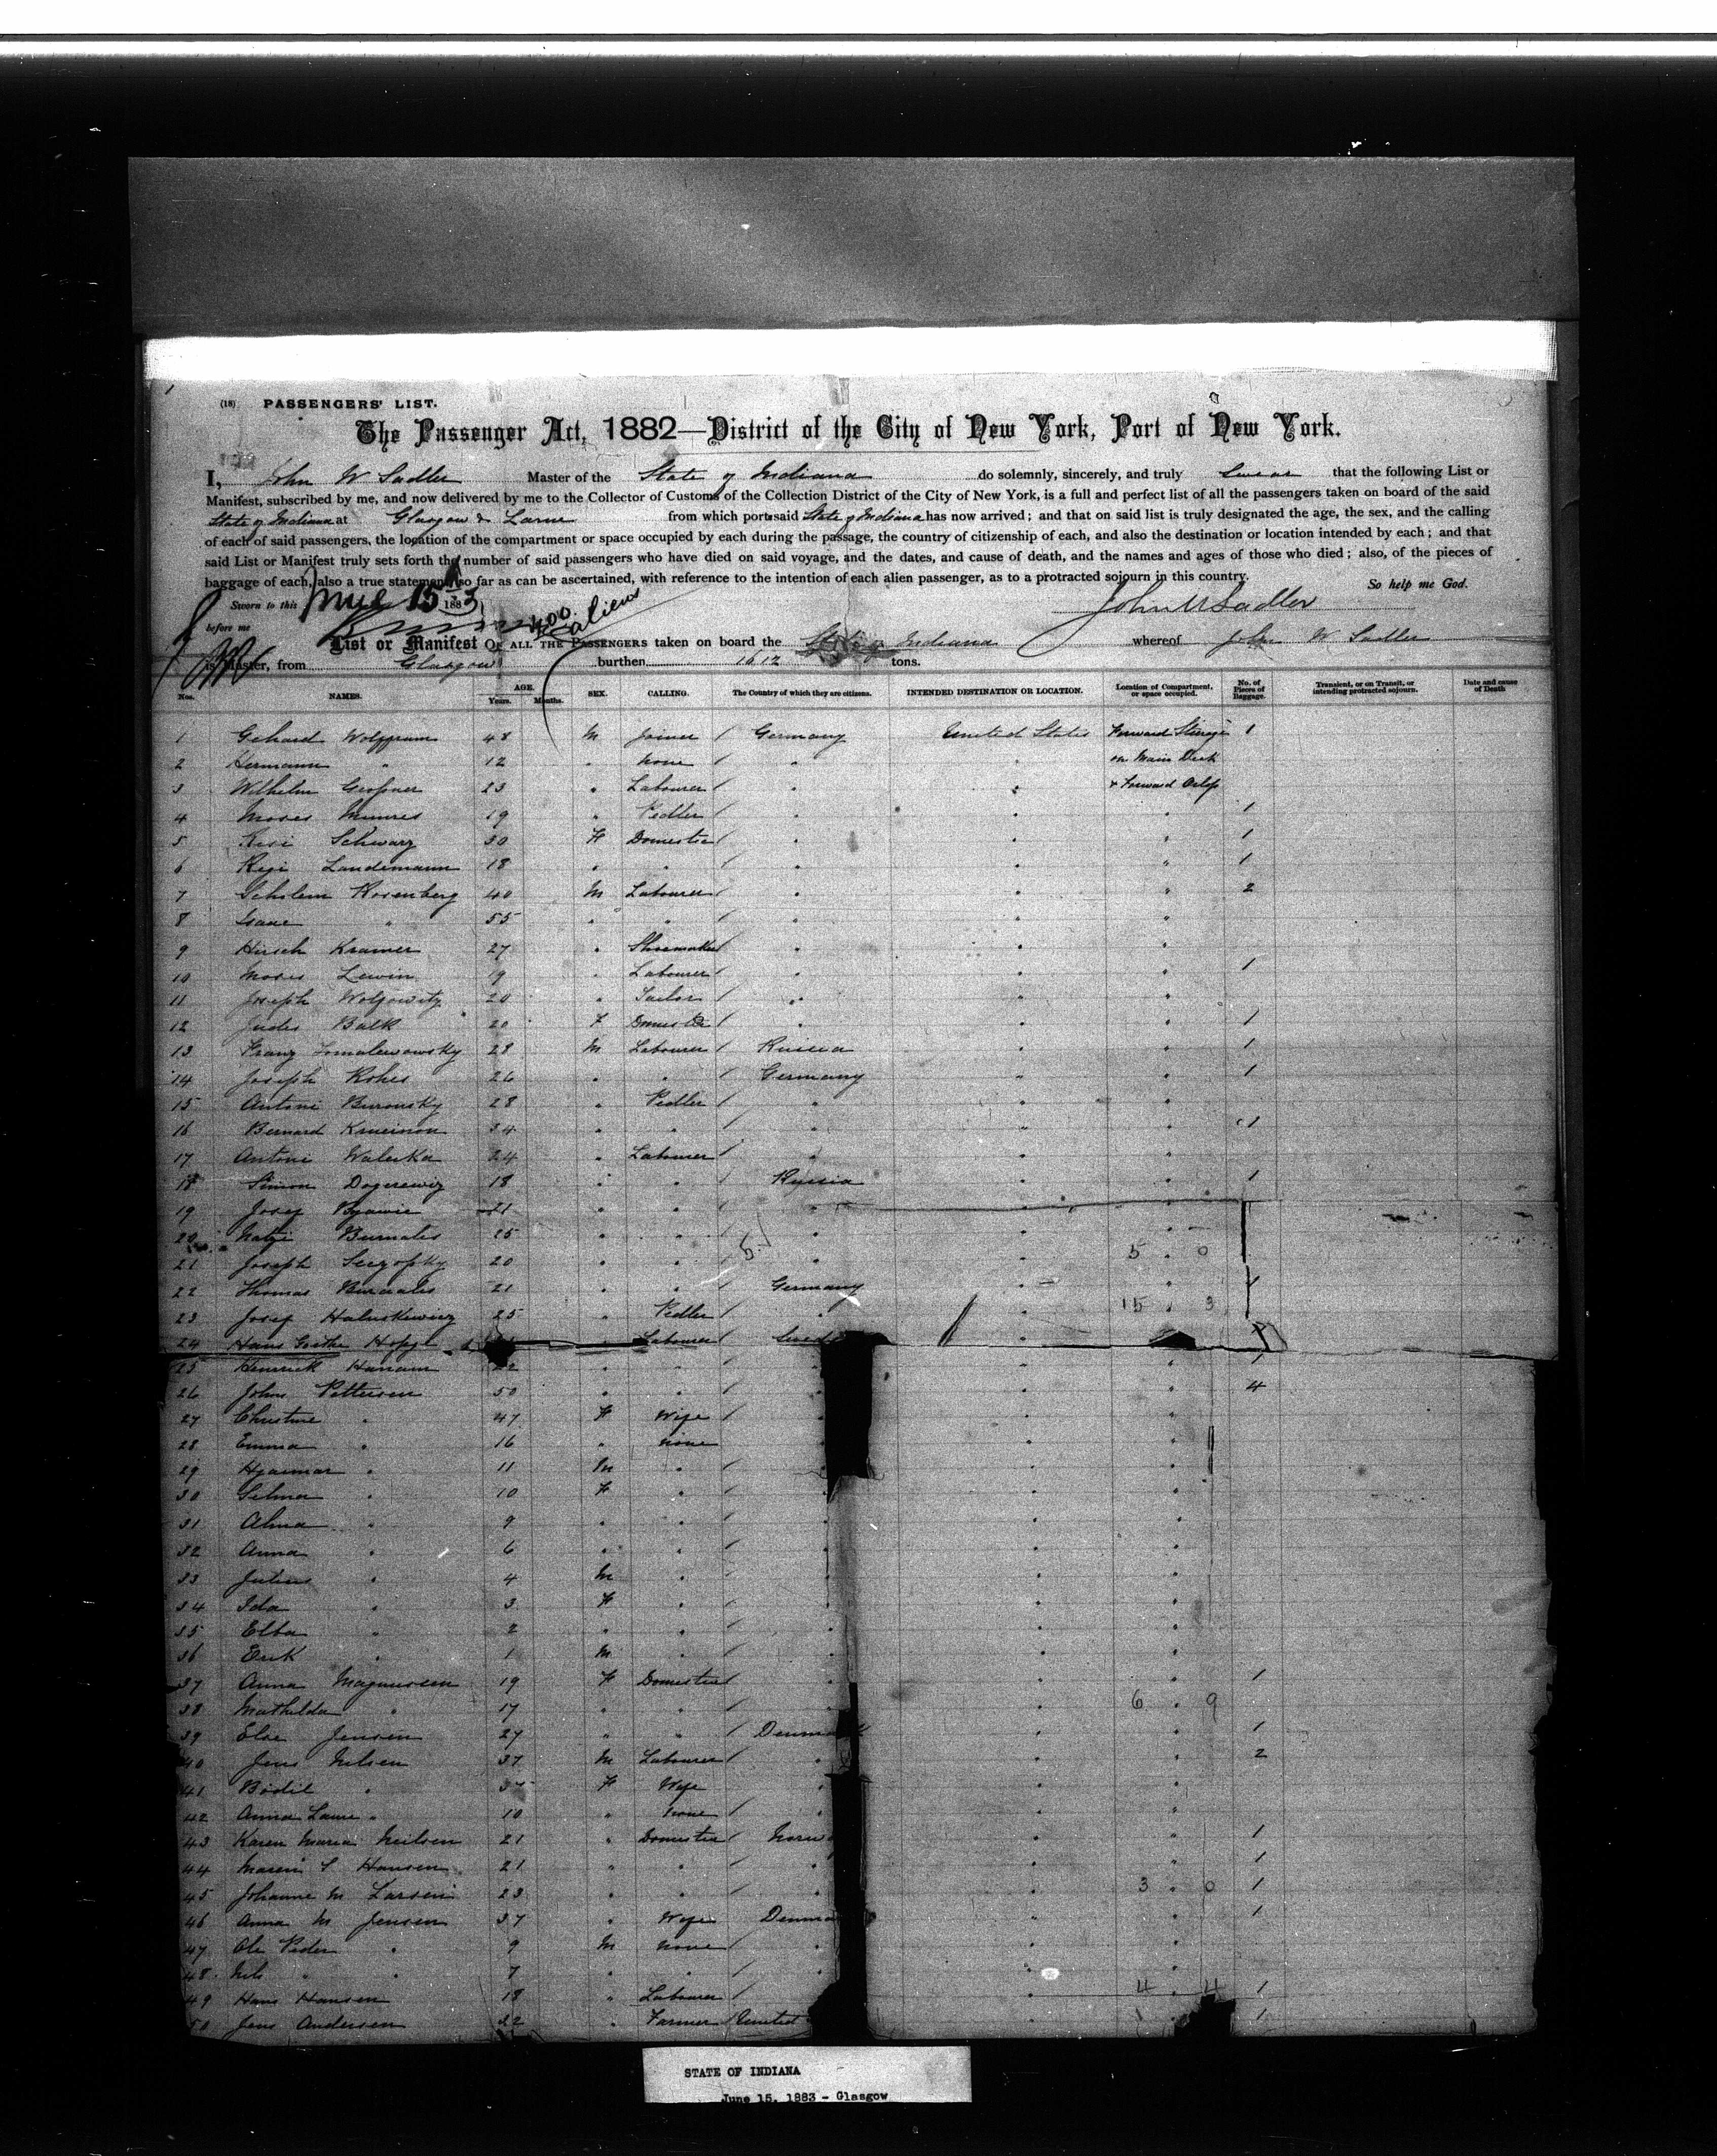 (18) PASSENGERS' LIST.
The Passenger Act, 1882—District of the City of New York, Port of New York.
I, John W Sadler Master of the State of Indiana do solemnly, sincerely, and truly Swear that the following List or
Manifest, subscribed by me, and now delivered by me to the Collector of Customs of the Collection District of the City of New York, is a full and perfect list of all the passengers taken on board of the said
State of Indiana at Glasgow & Larne from which port said State of Indiana has now arrived; and that on said list is truly designated the age, the sex, and the calling
of each of said passengers, the location of the compartment or space occupied by each during the passage, the country of citizenship of each, and also the destination or location intended by each; and that
said List or Manifest truly sets forth the number of said passengers who have died on said voyage, and the dates, and cause of death, and the names and ages of those who died; also, of the pieces of
baggage of each, also a true statement, so far as can be ascertained, with reference to the intention of each alien passenger, as to a protracted sojourn in this country. So help me God.
Sworn to this June 15 1883 John W Sadler
before me 400 aliens
List or Manifest OF ALL THE PASSENGERS taken on board the State of Indiana whereof John W Sadler
is Master, from Glasgow burthen 1612 tons.
Nos. NAMES. AGE. Years. Months. SEX. CALLING. The Country of which they are citizens. INTENDED DESTINATION OR LOCATION. Location of Compartment, or space occupied. No. of Pieces of Baggage. Transient, or on Transit, or intending protracted sojourn. Date and cause of Death
1 Gehard Wolffram 48 M Joiner / Germany United States Forward Steerage 1
2 Hermann " 12 " None / " " on Main Deck
3 Wilhelm Grossner 23 " Labourer / " " & Forward Orlop
4 Moses 19 " Pedler / " " " 1
5 Resi Schwarz 30 F Domestic / " " " 1
6 Regi Landemann 18 " " / " " " 1
7 Scholem Rosenberg 40 M Labourer / " " " 2
8 Isaac " 55 " " / " " "
9 Hirsch Kramer 27 " Shoemaker / " " "
10 Moses Lewin 19 " Labourer / " " " 1
11 Joseph Wolfowitz 20 " Tailor / " " "
12 Judes Balk 20 F Domestic / " " " 1
13 Franz 28 M Labourer / Russia " " 1
14 Joseph Rohes 26 " " / Germany " " 1
15 Antoni Buronsky 28 " Pedler / " " "
16 Bernard 34 " " / " " " 1
17 Antoni Waleska 24 " Labourer / " " "
18 Simon Dogerewiz 18 " " / Russia " " 1
19 Josef 21 " " " " "
20 Burnatis 25 " " " " "
21 Joseph 20 " " " " 5 " 0
22 Thomas 21 " " / Germany " "
23 Josef Haluskewicz 25 " Pedler / " " 15 " 3
24 Hans " Labourer / "
25 Henrick 22 " " / " " " 1
26 Johns Pettersen 50 " " / " " " 4
27 Christine " 47 F Wife / " " "
28 Emma " 16 " none " " "
29 Hjalmar " 11 M " / " " "
30 Selma " 10 F " / " " "
31 Alma " 9 " " / " " "
32 Anna " 6 " " / " " "
33 Julius " 4 M " / " " "
34 Ida " 3 F " / " " "
35 Elba " 2 " " / " " "
36 Erik " 1 M " / " " "
37 Anna Magnussen 19 F Domestic / " " " 1
38 Mathilda " 17 " " / " " 6 " 9
39 Else Jensen 27 " " / Denmark " " 1
40 Jens Nilsen 37 M Labourer / " " " 2
41 Bodil " F Wife " " "
42 Anna Laure " 10 " none / " " "
43 Karen Maria Neilsen 21 " Domestic / Norw " " 1
44 Maren S Hansen 21 " " / " " " 1
45 Johanne M Larsen 23 " " / " " 3 " 0 1
46 Anna M Jensen 37 " Wife Denma " " 1
47 Ole Peder " 9 M none / " " "
48 Nils " " 7 " " / " " "
49 Hans Hansen 18 " Labourer / 4 " 4 1
50 Jens Andersen 22 " Farmer / United " 1
STATE OF INDIANA
June 15, 1883 - Glasgow